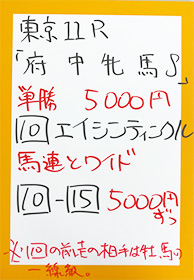 東京11R
「府中牝馬S」
単勝 5000円
10 エイシンティンクル
馬連とワイド
10-15 5000円ずつ
※10の前走の相手は牡馬の
一線級。